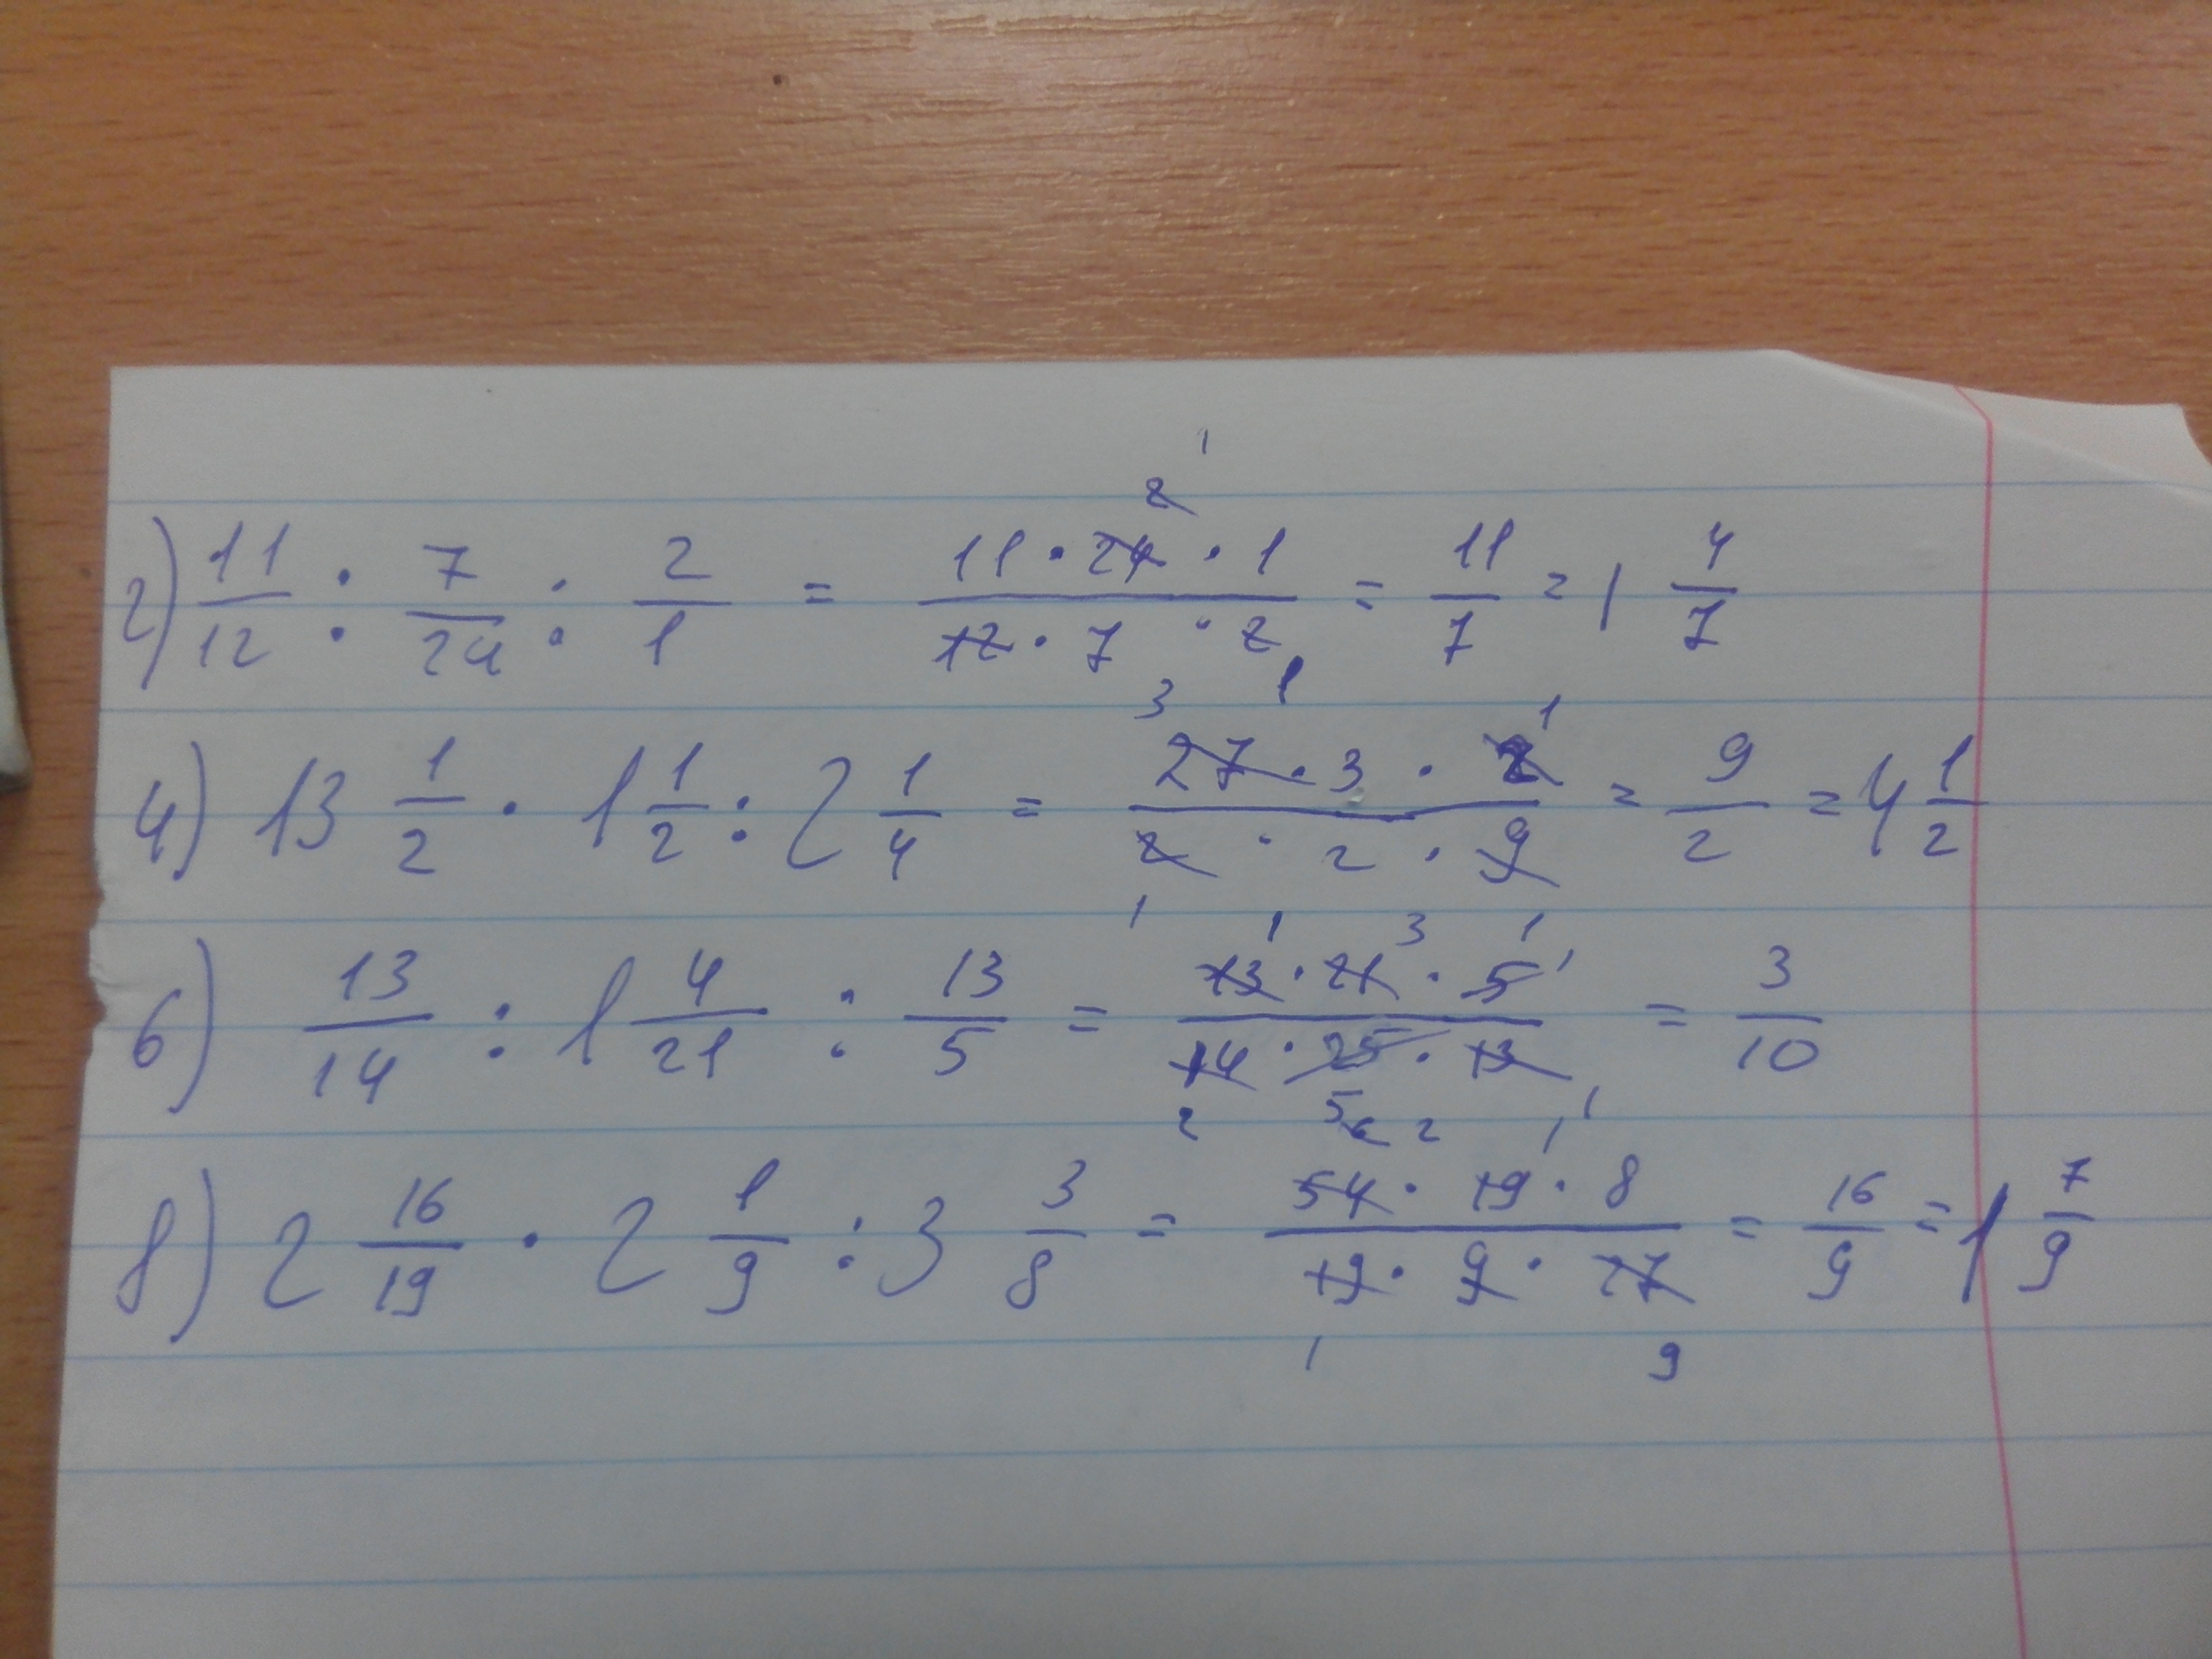 2) 11/12 : 7/24 : 2/1 = (11 · 24 · 1)/(12 · 7 · 2) = 11/7 = 1 4/7
4) 13 1/2 · 1 1/2 : 2 1/4 = (27 · 3 · 2)/(2 · 2 · 9) = 9/2 = 4 1/2
6) 13/14 : 1 4/21 : 13/5 = (13 · 21 · 5)/(14 · 25 · 13) = 3/10
8) 2 16/19 · 2 1/9 : 3 3/8 = (54 · 19 · 8)/(19 · 9 · 27) = 16/9 = 1 7/9